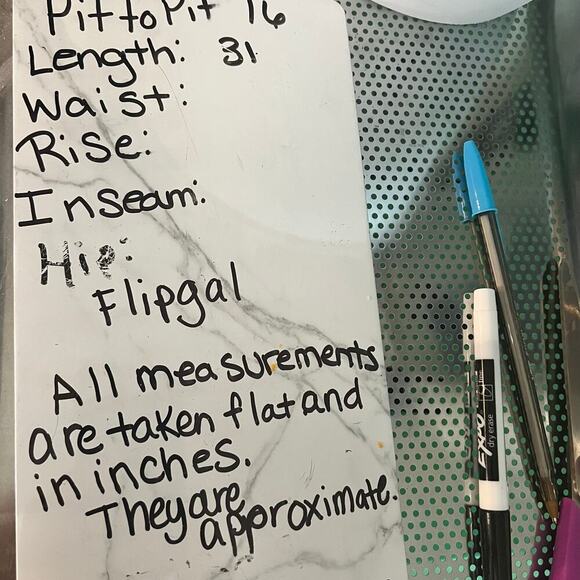 Pit to Pit 16
Length: 31
Waist:
Rise:
Inseam:
Hip:
Flipgal
All measurements
are taken flat and
in inches.
They are
approximate.
EXPO
dry erase